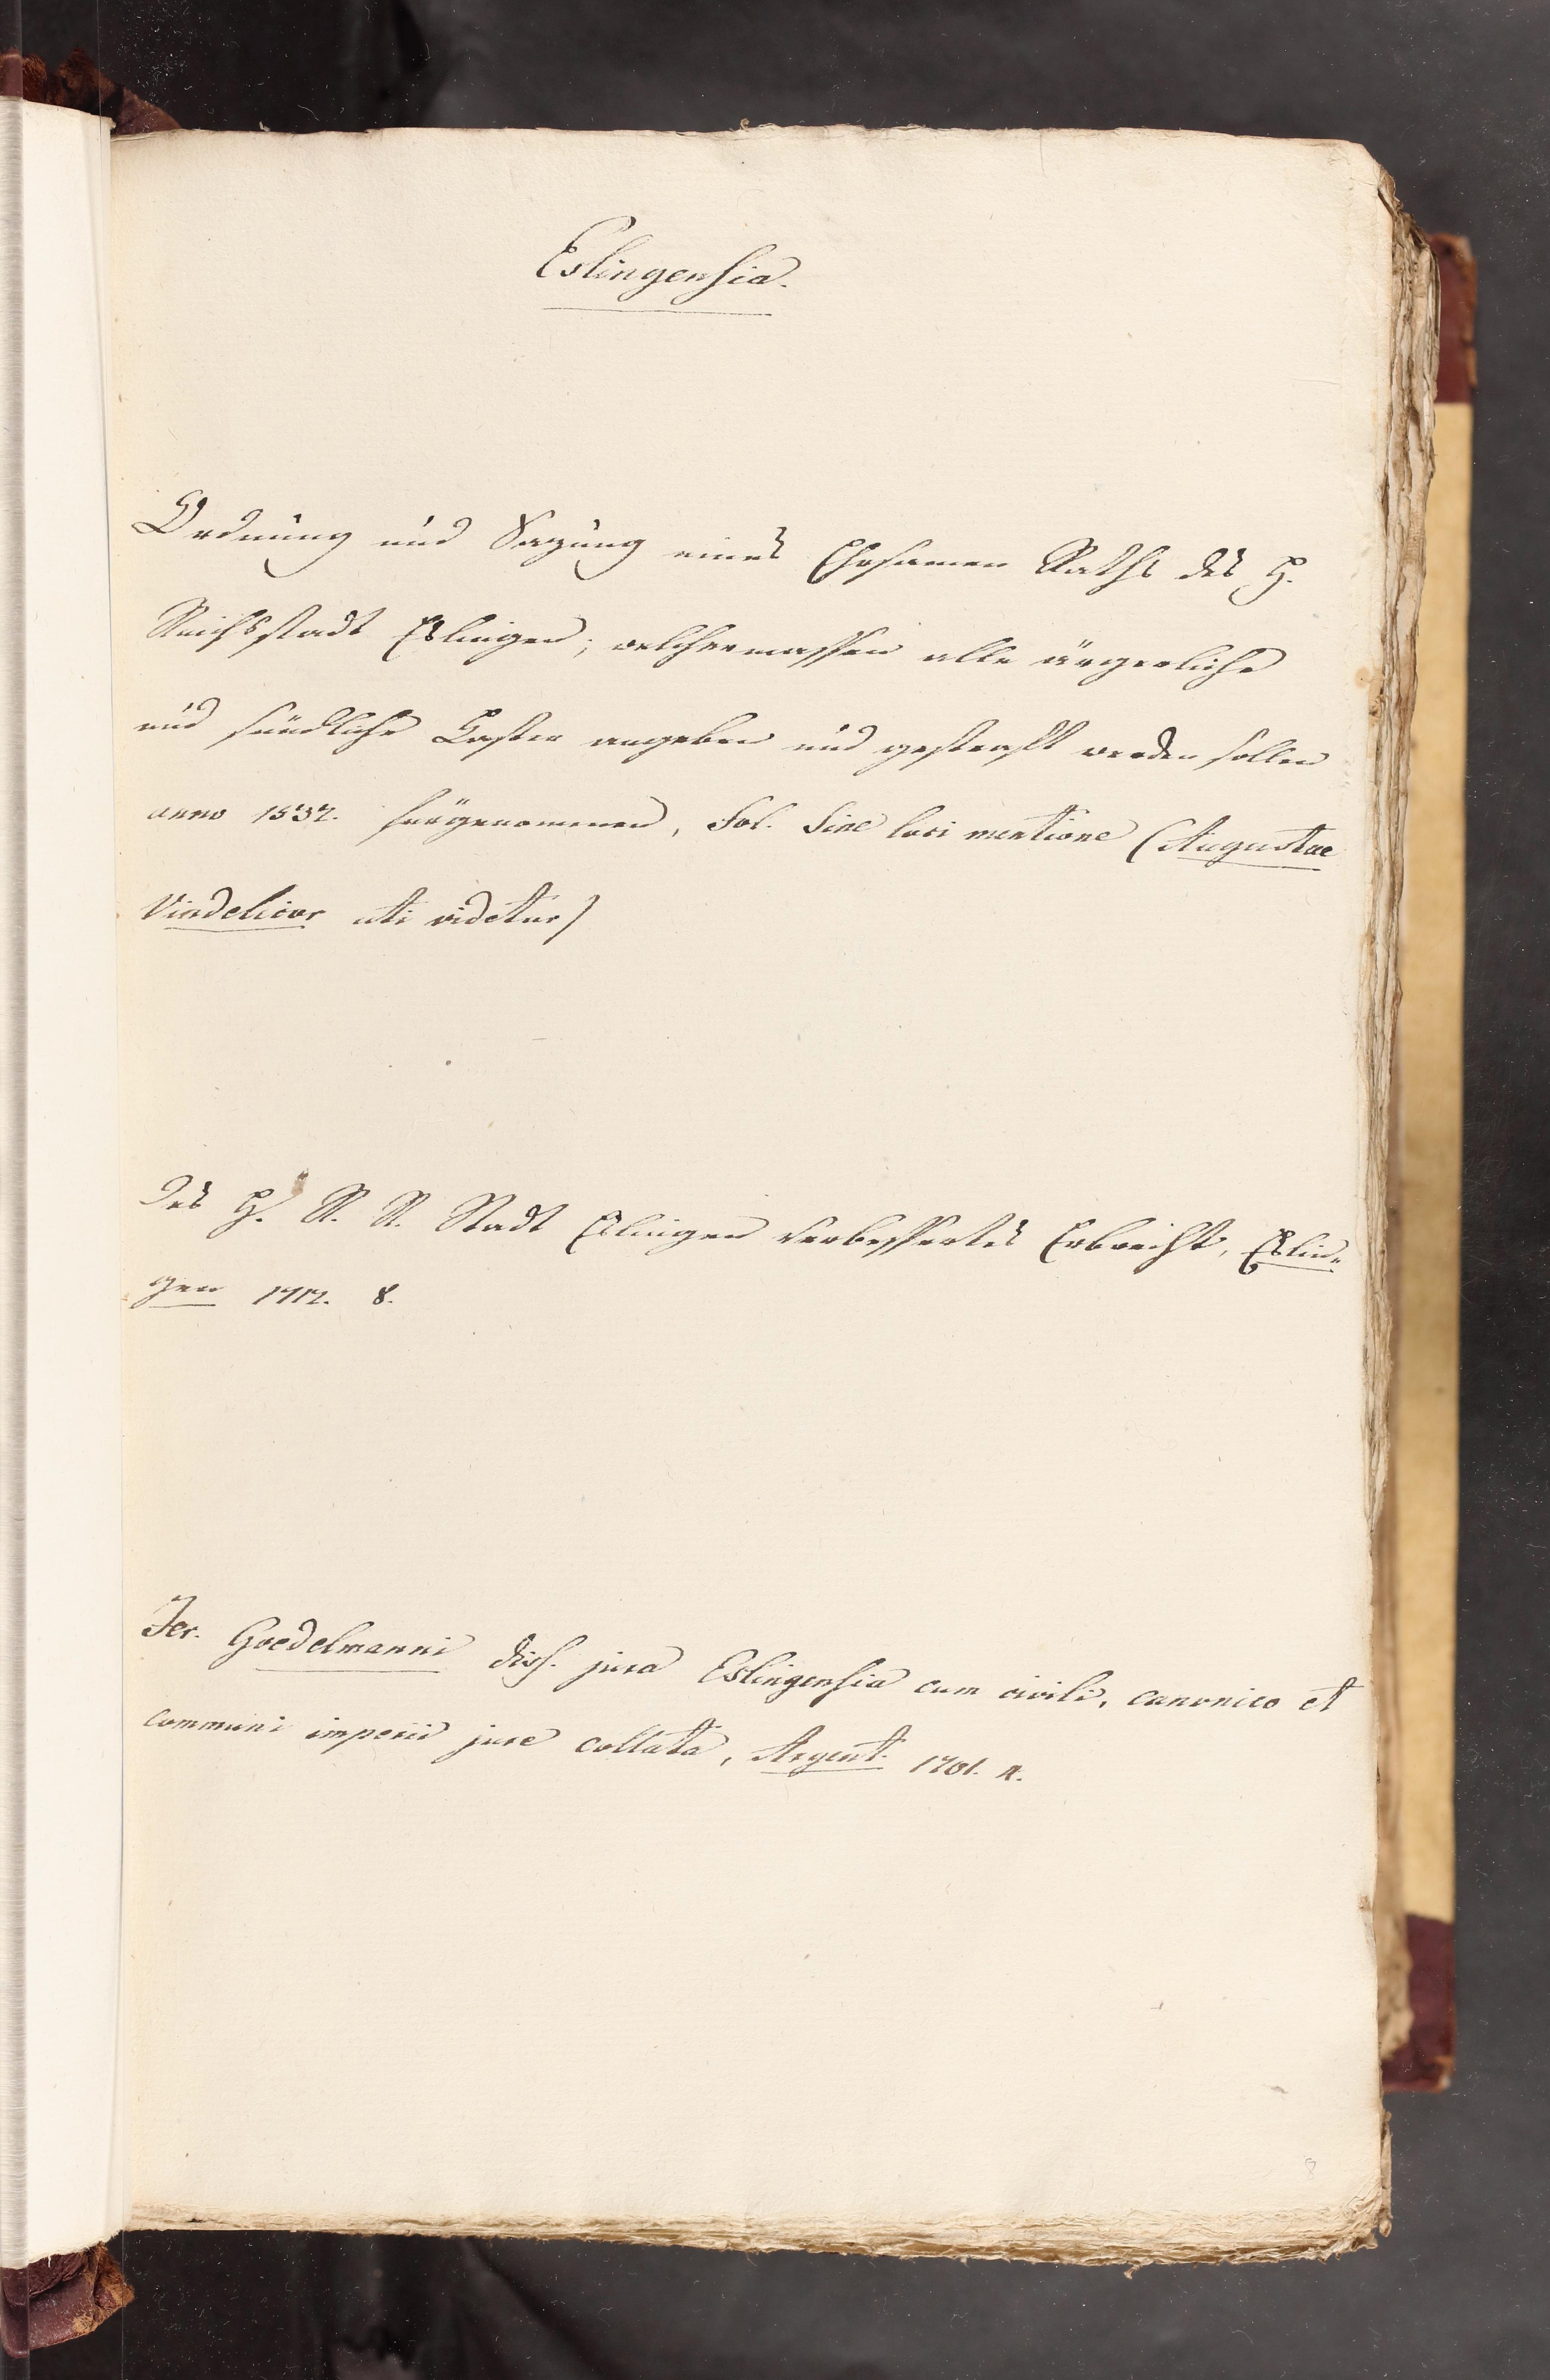 Eslingensia.
Ordnung und Sazung eines Ehrsamen Raths des H.
Reichsstadt Eslingen; welchermassen alle ärgerliche
und sündliche Laster angeben und gestrafft werden sollen
anno 1532. fürgenommen, Fol. Sine loci mentione (Augustae
Vindelicor uti videtur)
Des H. R. R. Stadt Eslingen verbessertes Erbrecht, Eslin„
gen 1712. 8.
Jer. Goedelmanni diss. jura Eslingensia cum civili, canonico et
communi imperii jure collata, Argent. 1701. 4.
8